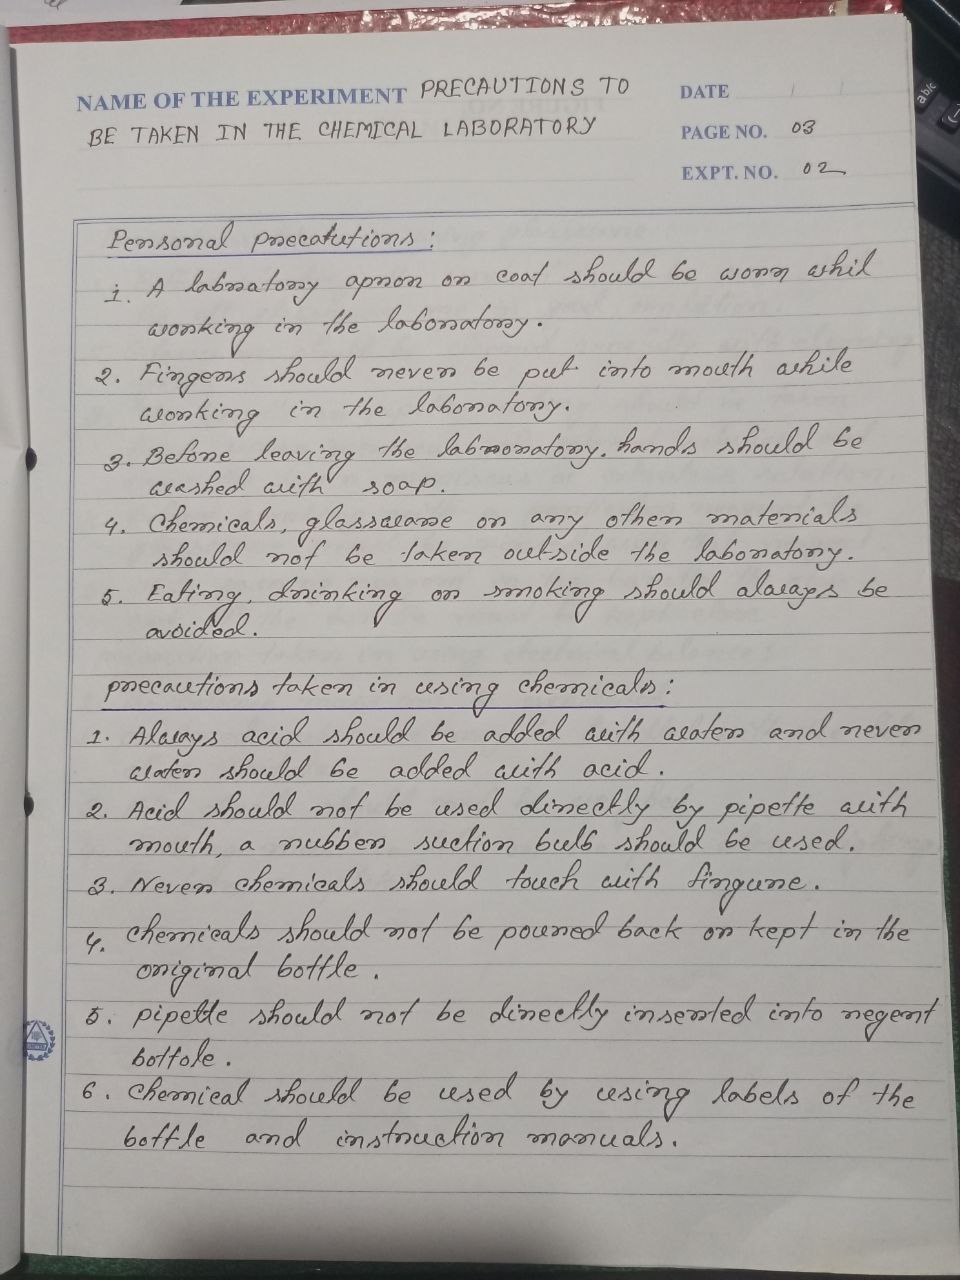 NAME OF THE EXPERIMENT PRECAUTIONS TO
BE TAKEN IN THE CHEMICAL LABORATORY
DATE
PAGE NO. 03
EXPT. NO. 02
Personal precatutions :
1. A labratory apron or coat should be worn whil
working in the laboratory.
2. Fingers should never be put into mouth while
working in the laboratory.
3. Before leaving the laboratory, hands should be
washed with soap.
4. Chemicals, glassware or any other materials
should not be taken outside the laboratory.
5. Eating, drinking or smoking should always be
avoided.
precautions taken in using chemicals :
1. Always acid should be added with water and never
water should be added with acid.
2. Acid should not be used directly by pipette with
mouth, a rubber suction bulb should be used.
3. Never chemicals should touch with fingure.
4. chemicals should not be poured back or kept in the
original bottle.
5. pipette should not be directly inserted into regent
bottole.
6. chemical should be used by using labels of the
bottle and instruction manuals.